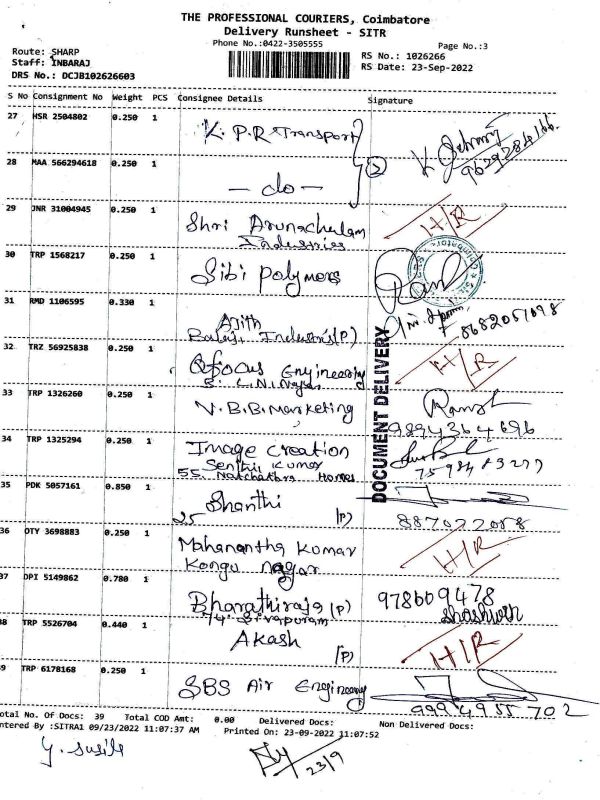 THE PROFESSIONAL COURIERS, Coimbatore
Delivery Runsheet - SITR
Phone No.:0422-3505555
Page No.:3
Route: SHARP
Staff: INBARAJ
DRS No.: DCJB102626603
RS No.: 1026266
RS Date: 23-Sep-2022
S No Consignment No Weight PCS Consignee Details Signature
27 HSR 2504802 0.250 1 K. P. R Transport
28 MAA 566294618 0.250 1 - do - 2
29 JNR 31004945 0.250 1 Shri Arunachalam H/R
Industries
30 TRP 1568217 0.250 1 Sibi Polymers
31 RMD 1106595 0.330 1 Ajith
Balaji Industris (P) 8682051098
32 TRZ 56925838 0.250 1 Qfocus Engineering H/R
33 TRP 1326260 0.250 1 V.B.B. Marketing
9894364696
34 TRP 1325294 0.250 1 Image Creation
Senthil Kumar
55. Natchathra Homes
DOCUMENT DELIVERY
35 PDK 5057161 0.850 1 Shanthi
25 (P)
36 OTY 3698883 0.250 1 Mahanantha Kumar H/R
Kongu nagar
37 DPI 5149862 0.780 1 Bharathiraja (P) 9786609478
74. Sivapuram
38 TRP 5526704 0.440 1 Akash (P) H/R
39 TRP 6178168 0.250 1 SBS Air Engineering
9994955702
Total No. Of Docs: 39 Total COD Amt: 0.00 Delivered Docs: Non Delivered Docs:
Entered By :SITRA1 09/23/2022 11:07:37 AM Printed On: 23-09-2022 11:07:52
23/9